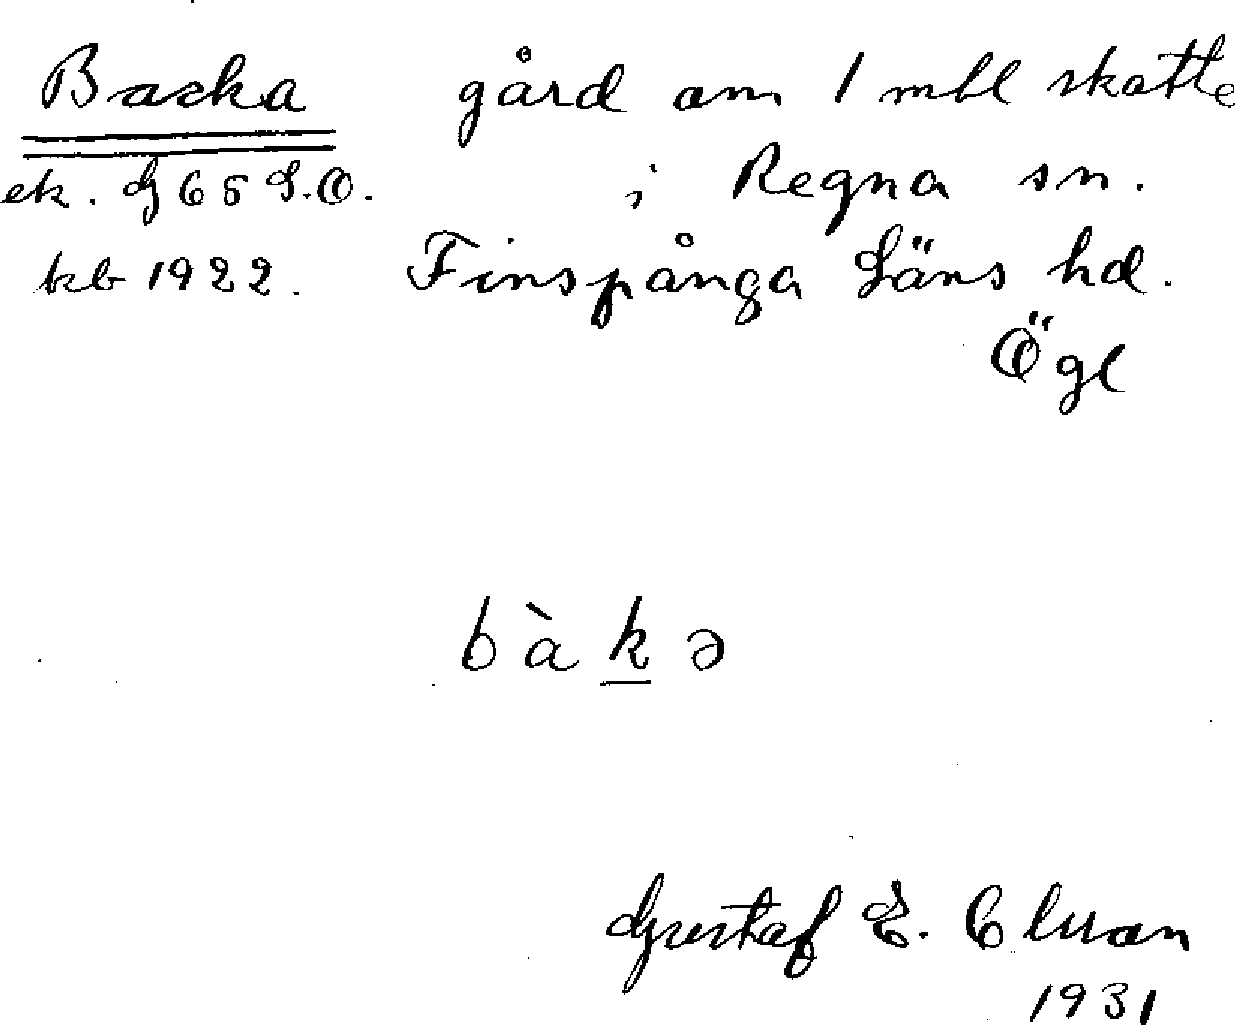 Backa gård om 1 mtl skatte
ek. G 65 S.O. i Regna sn.
kb 1922. Finspånga Läns hd.
Ögl
bàkə
Gustaf E. Cluan
1931